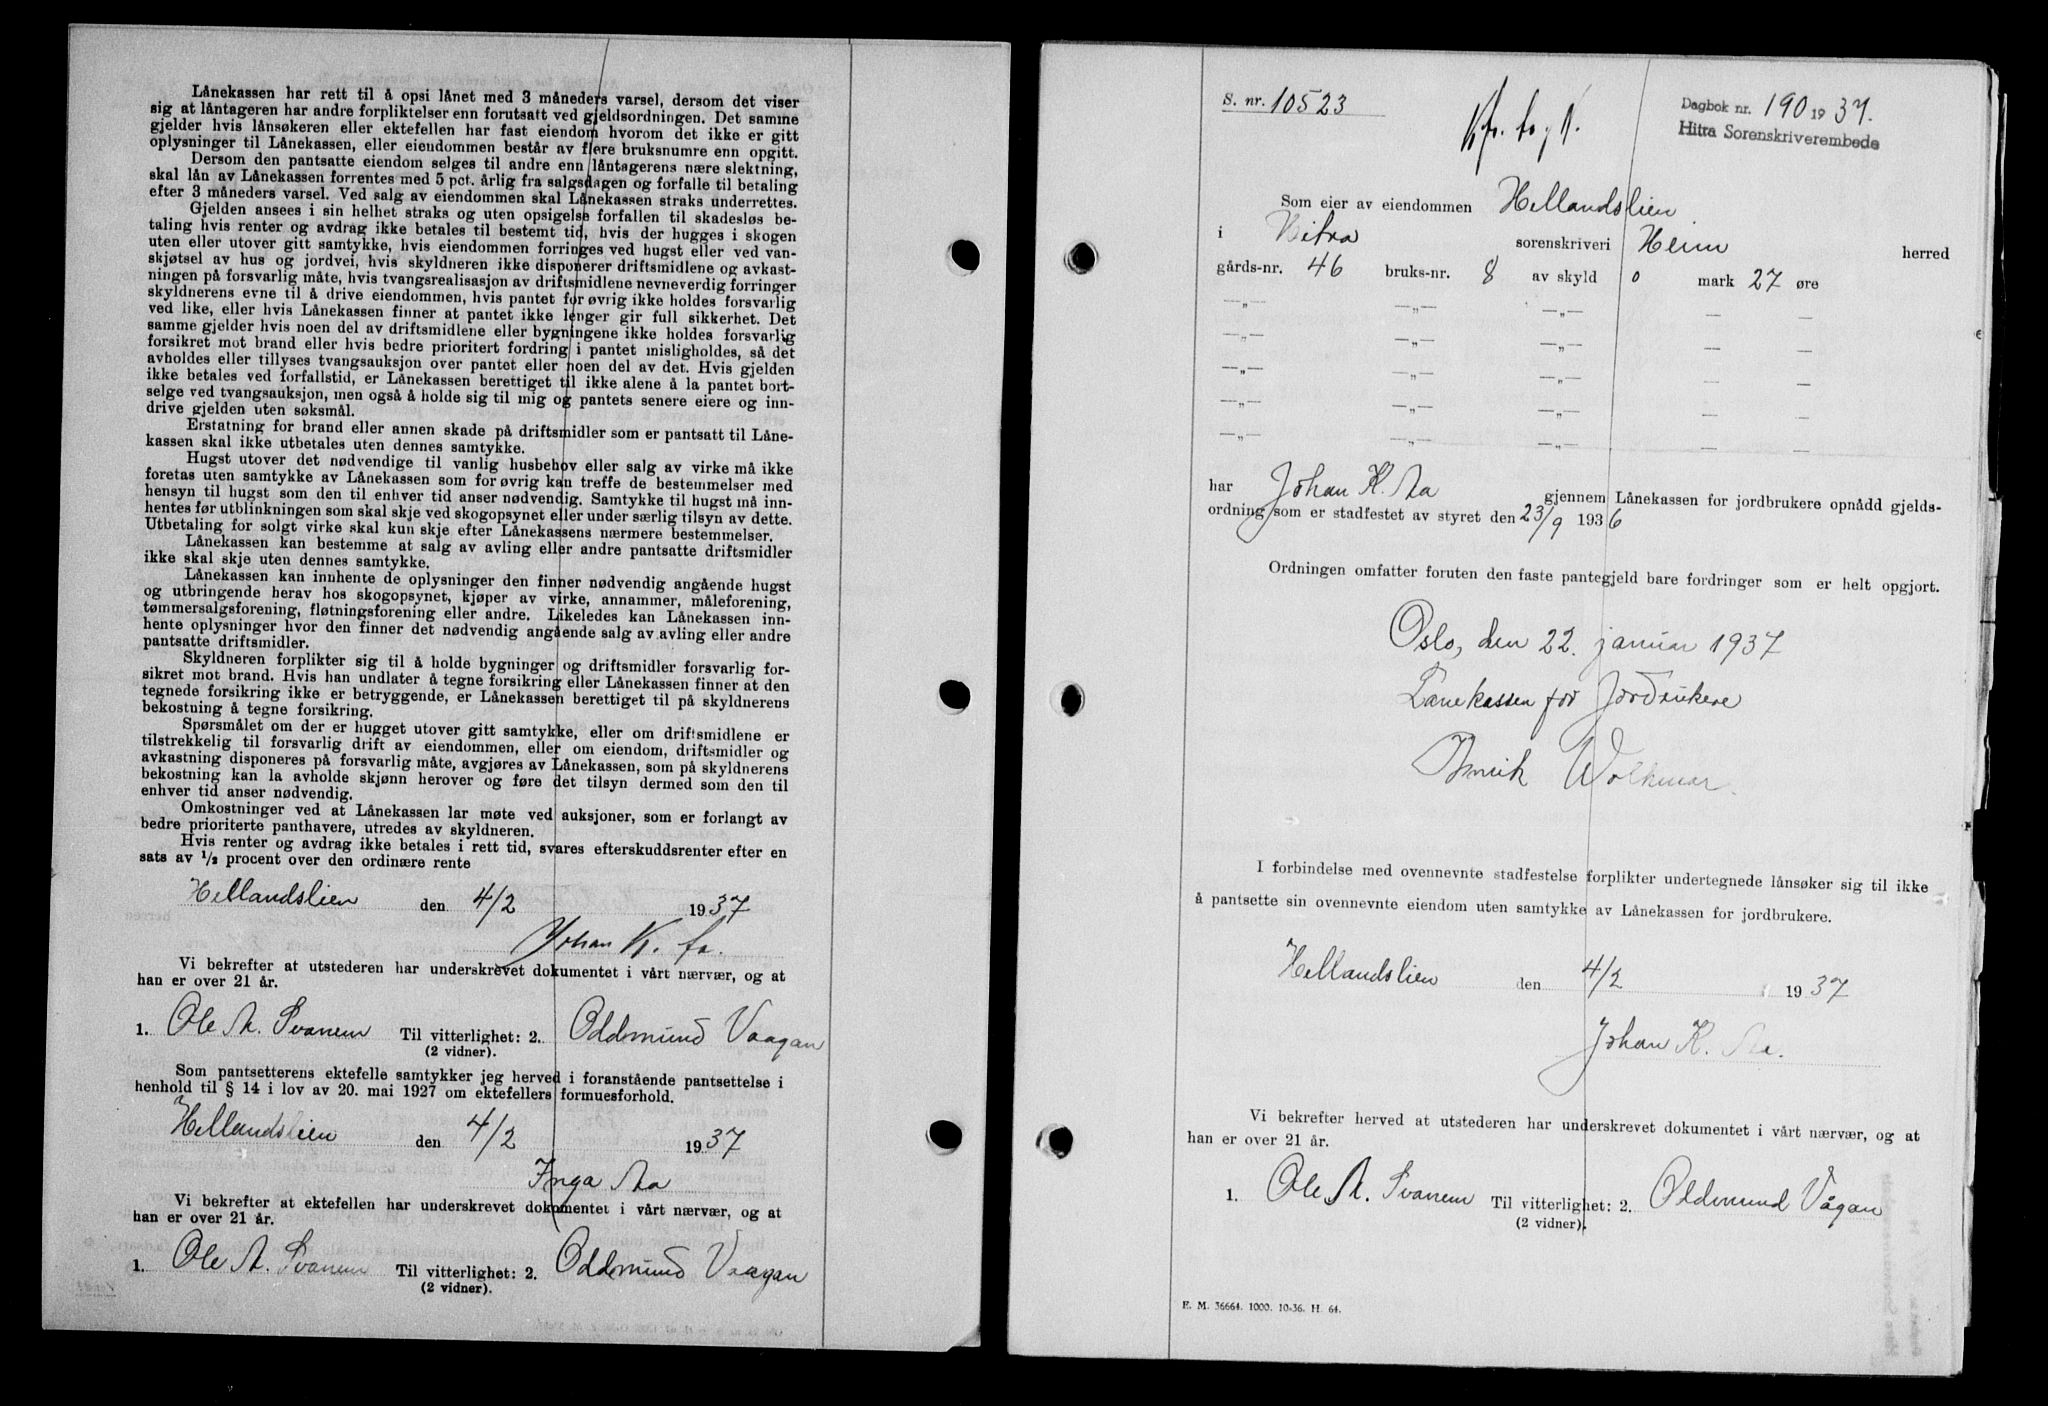 Lånekassen har rett til å opsi lånet med 3 måneders varsel, dersom det viser
sig at låntageren har andre forpliktelser enn forutsatt ved gjeldsordningen. Det samme
gjelder hvis lånsøkeren eller ektefellen har fast eiendom hvorom det ikke er gitt
oplysninger til Lånekassen, eller eiendommen består av flere bruksnumre enn opgitt.
Dersom den pantsatte eiendom selges til andre enn låntagerens nære slektning,
skal lån av Lånekassen forrentes med 5 pct. årlig fra salgsdagen og forfalle til betaling
efter 3 måneders varsel. Ved salg av eiendommen skal Lånekassen straks underrettes.
Gjelden ansees i sin helhet straks og uten opsigelse forfallen til skadesløs be-
taling hvis renter og avdrag ikke betales til bestemt tid, hvis der hugges i skogen
uten eller utover gitt samtykke, hvis eiendommen forringes ved hugst eller ved van-
skjøtsel av hus og jordvei, hvis skyldneren ikke disponerer driftsmidlene og avkast-
ningen på forsvarlig måte, hvis tvangsrealisasjon av driftsmidlene nevneverdig forringer
skyldnerens evne til å drive eiendommen, hvis pantet for øvrig ikke holdes forsvarlig
ved like, eller hvis Lånekassen finner at pantet ikke lenger gir full sikkerhet. Det
samme gjelder hvis noen del av driftsmidlene eller bygningene ikke holdes forsvarlig
forsikret mot brand eller hvis bedre prioritert fordring i pantet misligholdes, så det
avholdes eller tillyses tvangsauksjon over pantet eller noen del av det. Hvis gjelden
ikke betales ved forfallstid, er Lånekassen berettiget til ikke alene å la pantet bort-
selge ved tvangsauksjon, men også å holde sig til mig og pantets senere eiere og inn-
drive gjelden uten søksmål.
Erstatning for brand eller annen skade på driftsmidler som er pantsatt til Låne-
kassen skal ikke utbetales uten dennes samtykke.
Hugst utover det nødvendige til vanlig husbehov eller salg av virke må ikke
foretas uten samtykke av Lånekassen som for øvrig kan treffe de bestemmelser med
hensyn til hugst som den til enhver tid anser nødvendig. Samtykke til hugst må inn-
hentes før utblinkningen som skal skje ved skogopsynet eller under særlig tilsyn av dette.
Utbetaling for solgt virke skal kun skje efter Lånekassens nærmere bestemmelser.
Lånekassen kan bestemme at salg av avling eller andre pantsatte driftsmidler
ikke skal skje uten dennes samtykke.
Lånekassen kan innhente de oplysninger den finner nødvendig angående hugst
og utbringende herav hos skogopsynet, kjøper av virke, annammer, måleforening,
tømmersalgsforening, fløtningsforening eller andre. Likeledes kan Lånekassen inn-
hente oplysninger hvor den finner det nødvendig angående salg av avling eller andre
pantsatte driftsmidler.
Skyldneren forplikter sig til å holde bygninger og driftsmidler forsvarlig for-
sikret mot brand. Hvis han undlater å tegne forsikring eller Lånekassen finner at den
tegnede forsikring ikke er betryggende, er Lånekassen berettiget til på skyldnerens
bekostning å tegne forsikring.
Spørsmålet om der er hugget utover gitt samtykke, eller om driftsmidlene er
tilstrekkelig til forsvarlig drift av eiendommen, eller om eiendom, driftsmidler og
avkastning disponeres på forsvarlig måte, avgjøres av Lånekassen, som på skyldnerens
bekostning kan la avholde skjønn herover og føre det tilsyn dermed som den til
enhver tid anser nødvendig.
Omkostninger ved at Lånekassen lar møte ved auksjoner, som er forlangt av
bedre prioriterte panthavere, utredes av skyldneren.
Hvis renter og avdrag ikke betales i rett tid, svares efterskuddsrenter efter en
sats av 1/2 procent over den ordinære rente
Hellandslien den 4/2 1937
Johan K. Aa.
Vi bekrefter at utstederen har underskrevet dokumentet i vårt nærvær, og at
han er over 21 år.
1. Ole A. Svanem Til vitterlighet: 2. Oddmund Vaagan
(2 vidner).
Som pantsetterens ektefelle samtykker jeg herved i foranstående pantsettelse i
henhold til § 14 i lov av 20. mai 1927 om ektefellers formuesforhold.
Hellandslien den 4/2 1937
Inga Aa
Vi bekrefter at ektefellen har underskrevet dokumentet i vårt nærvær, og at
han er over 21 år.
1. Ole A. Svanem Til vitterlighet: 2. Oddmund Vaagan
(2 vidner).
S. nr. 10523
Dagbok nr. 190 1937.
Hitra Sorenskriverembede
Som eier av eiendommen Hellandslien
i Hitra sorenskriveri Heim herred
gårds-nr. 46 bruks-nr. 8 av skyld 0 mark 27 øre
—„— —„— —„— — —
—„— —„— —„— — —
—„— —„— —„— — —
—„— —„— —„— — —
—„— —„— —„— — —
har Johan K. Aa gjennem Lånekassen for jordbrukere opnådd gjelds-
ordning som er stadfestet av styret den 23/9 1936
Ordningen omfatter foruten den faste pantegjeld bare fordringer som er helt opgjort.
Oslo, den 22. januar 1937
Lånekassen for Jordbrukere
Wolkmar.
I forbindelse med ovennevnte stadfestelse forplikter undertegnede lånsøker sig til ikke
å pantsette sin ovennevnte eiendom uten samtykke av Lånekassen for jordbrukere.
Hellandslien den 4/2 1937
Johan K. Aa.
Vi bekrefter herved at utstederen har underskrevet dokumentet i vårt nærvær, og at
han er over 21 år.
1. Ole A. Svanem Til vitterlighet: 2. Oddmund Vågan
(2 vidner).
E. M. 36664. 1000. 10-36. H. 64.